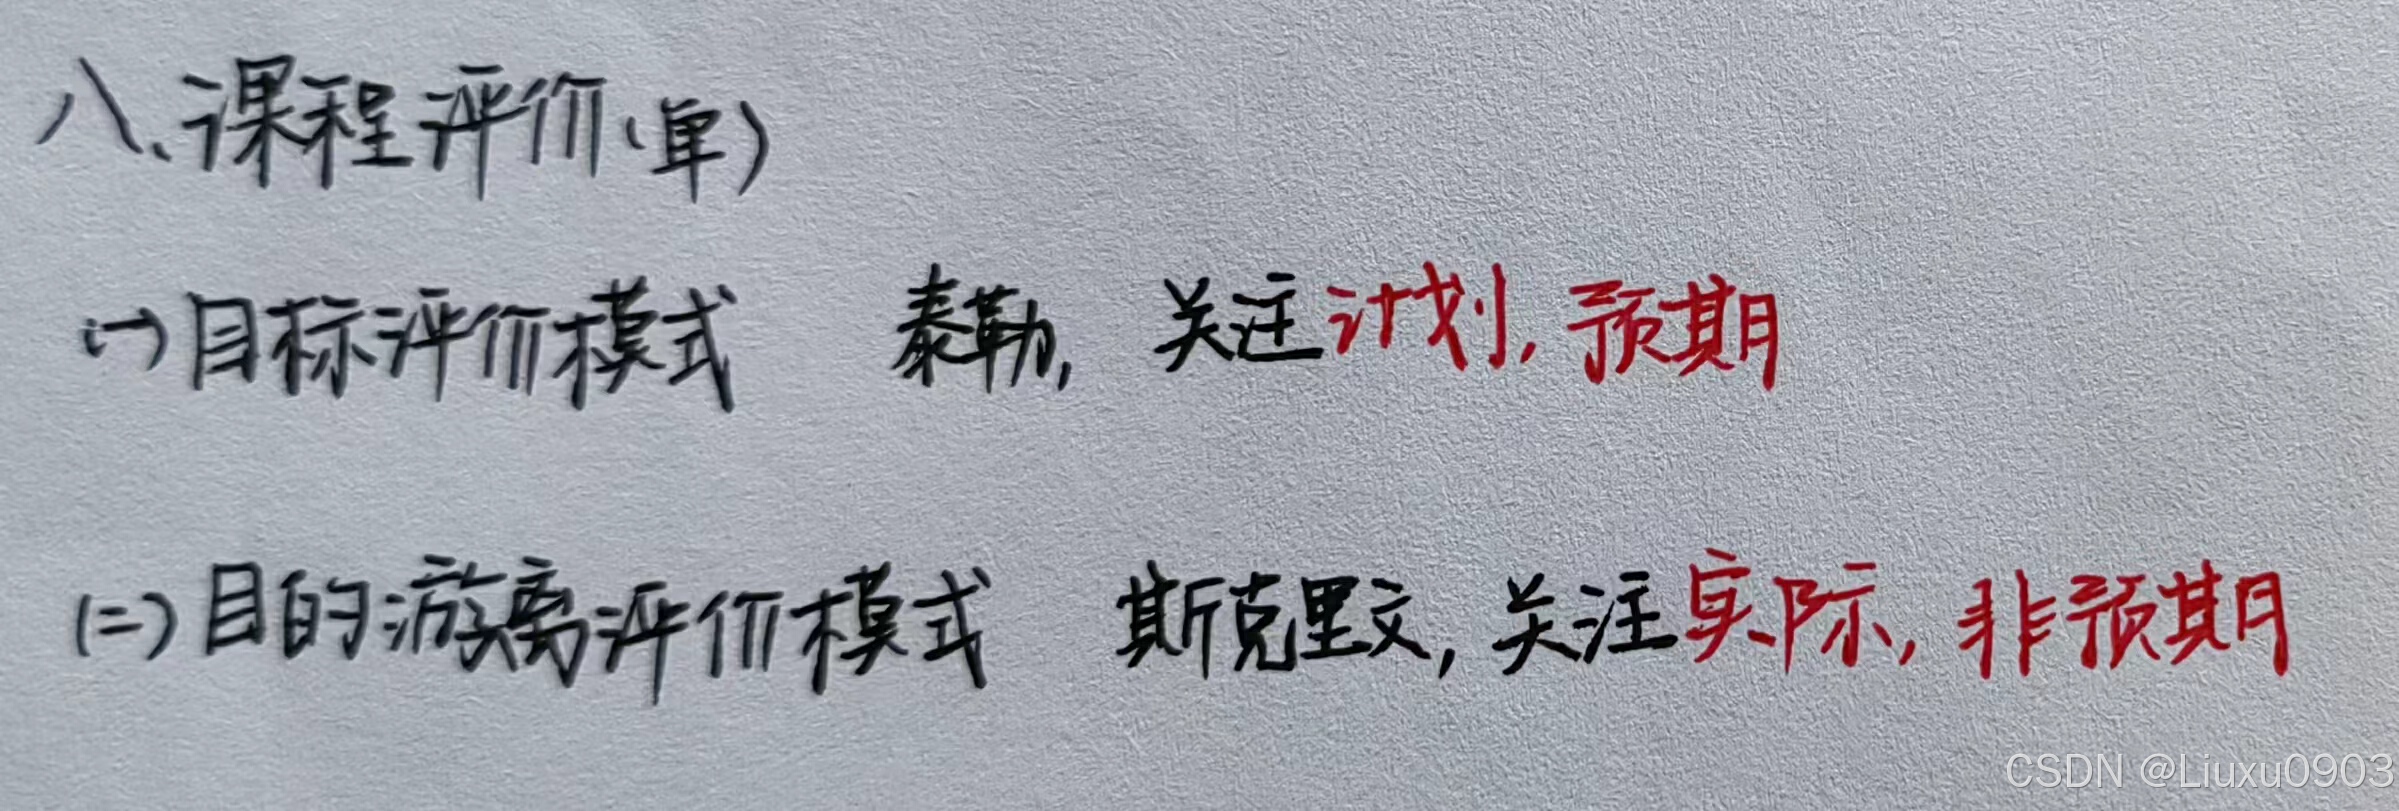 八、课程评价(单)
(一)目标评价模式 泰勒, 关注计划, 预期
(二)目的游离评价模式 斯克里文, 关注实际, 非预期
CSDN @Liuxu0903